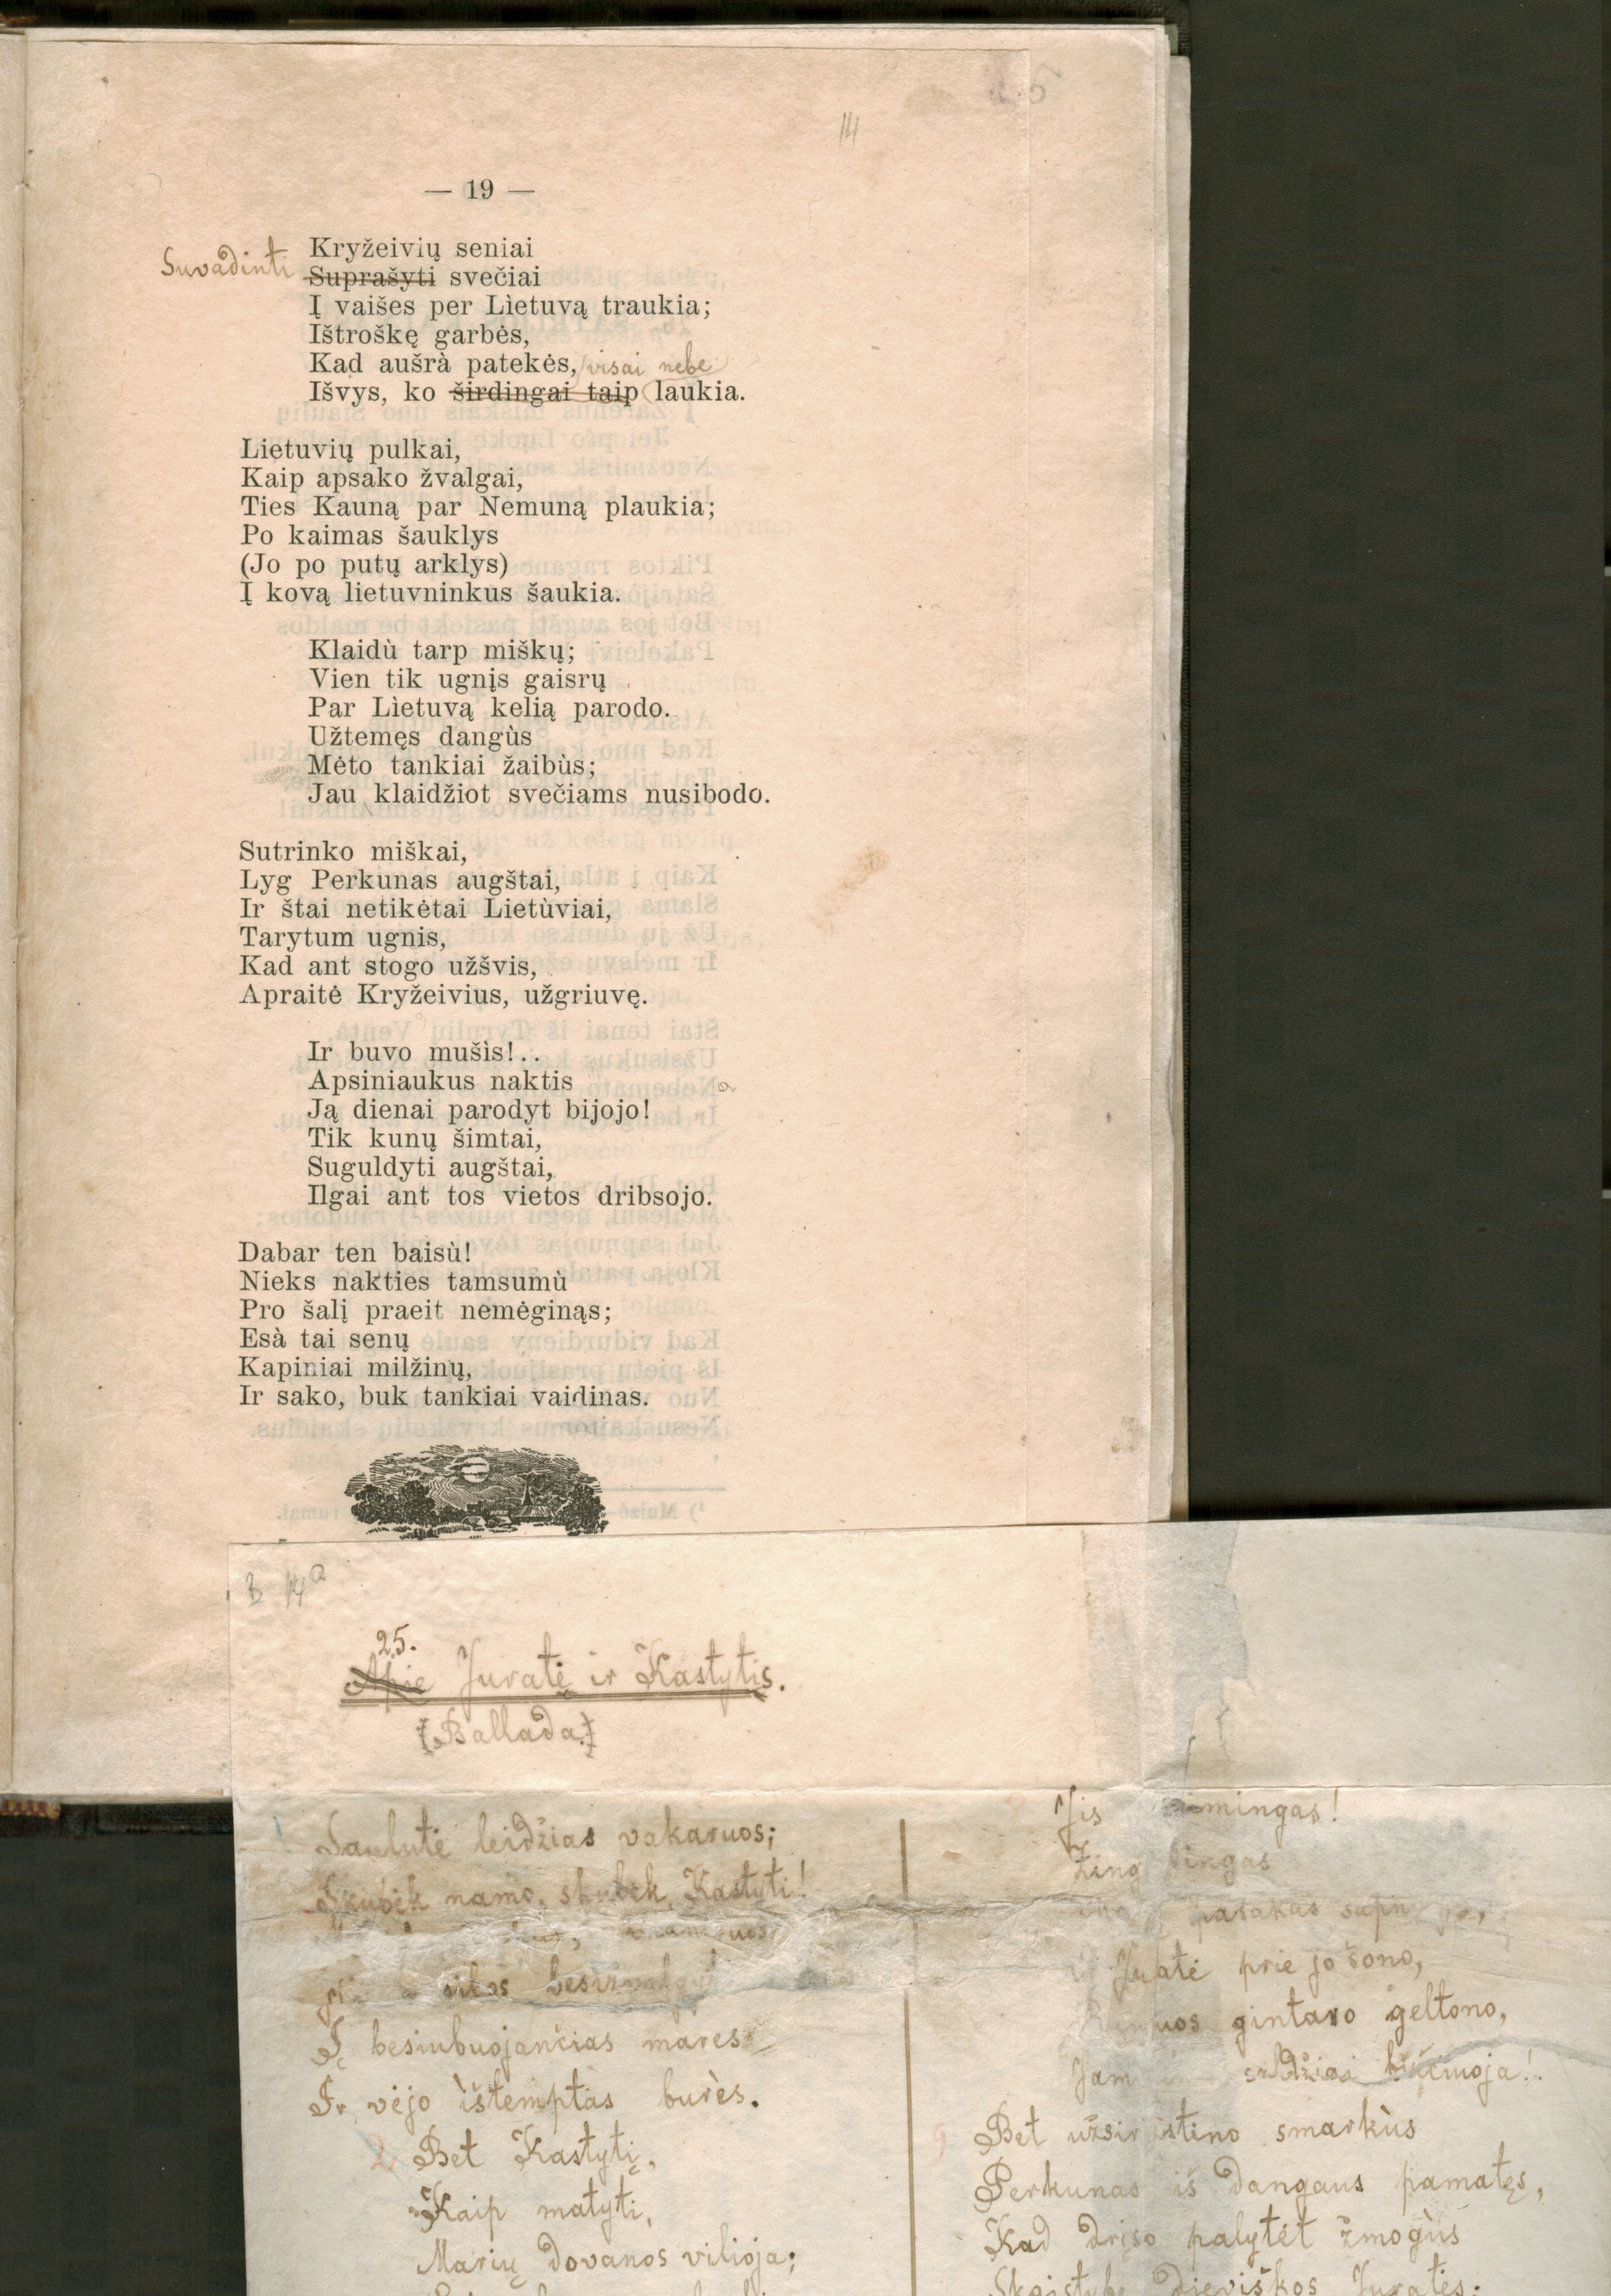 14
— 19 —
Kryžeivių seniai
Suvadinti Suprašyti svečiai
Į vaišes per Lìetuvą traukia;
Ištroškę garbės,
Kad aušrà patekės, visai nebe
Išvys, ko širdingai taip laukia.
Lietuvių pulkai,
Kaip apsako žvalgai,
Ties Kauną par Nemuną plaukia;
Po kaimas šauklys
(Jo po putų arklys)
Į kovą lietuvninkus šaukia.
Klaidù tarp miškų;
Vien tik ugnįs gaisrų
Par Lìetuvą kelią parodo.
Užtemęs dangùs
Mėto tankiai žaibùs;
Jau klaidžiot svečiams nusibodo.
Sutrinko miškai,
Lyg Perkunas augštai,
Ir štai netikėtai Lietùviai,
Tarytum ugnis,
Kad ant stogo užšvis,
Apraitė Kryžeivius, užgriuvę.
Ir buvo mušìs!..
Apsiniaukus naktis
Ją dienai parodyt bijojo!
Tik kunų šimtai,
Suguldyti augštai,
Ilgai ant tos vietos dribsojo.
Dabar ten baisù!
Nieks nakties tamsumù
Pro šalį praeit nemėginąs;
Esà tai senų
Kapiniai milžinų,
Ir sako, buk tankiai vaidinas.
B 14a
25.
Apie Juratė ir Kastytis.
(Ballada.)
Saulutė leidžias vakaruos;
Skubėk namo, skubėk, Kastyti!
Į besiubuojančias mares
Ir vėjo ištemptas burès.
2. Bet Kastytį,
Kaip matyti,
Marių dovanos vilioja;
Jis mingas!
pasakas
Juratė prie jo šono,
gintaro geltono,
Jam saldžiai bučiuoja!
9 Bet užsirustino smarkùs
Perkunas iš dangaus pamatęs,
Kad drįso palytėt žmogùs
Skaistybę dieviškos Juratės;